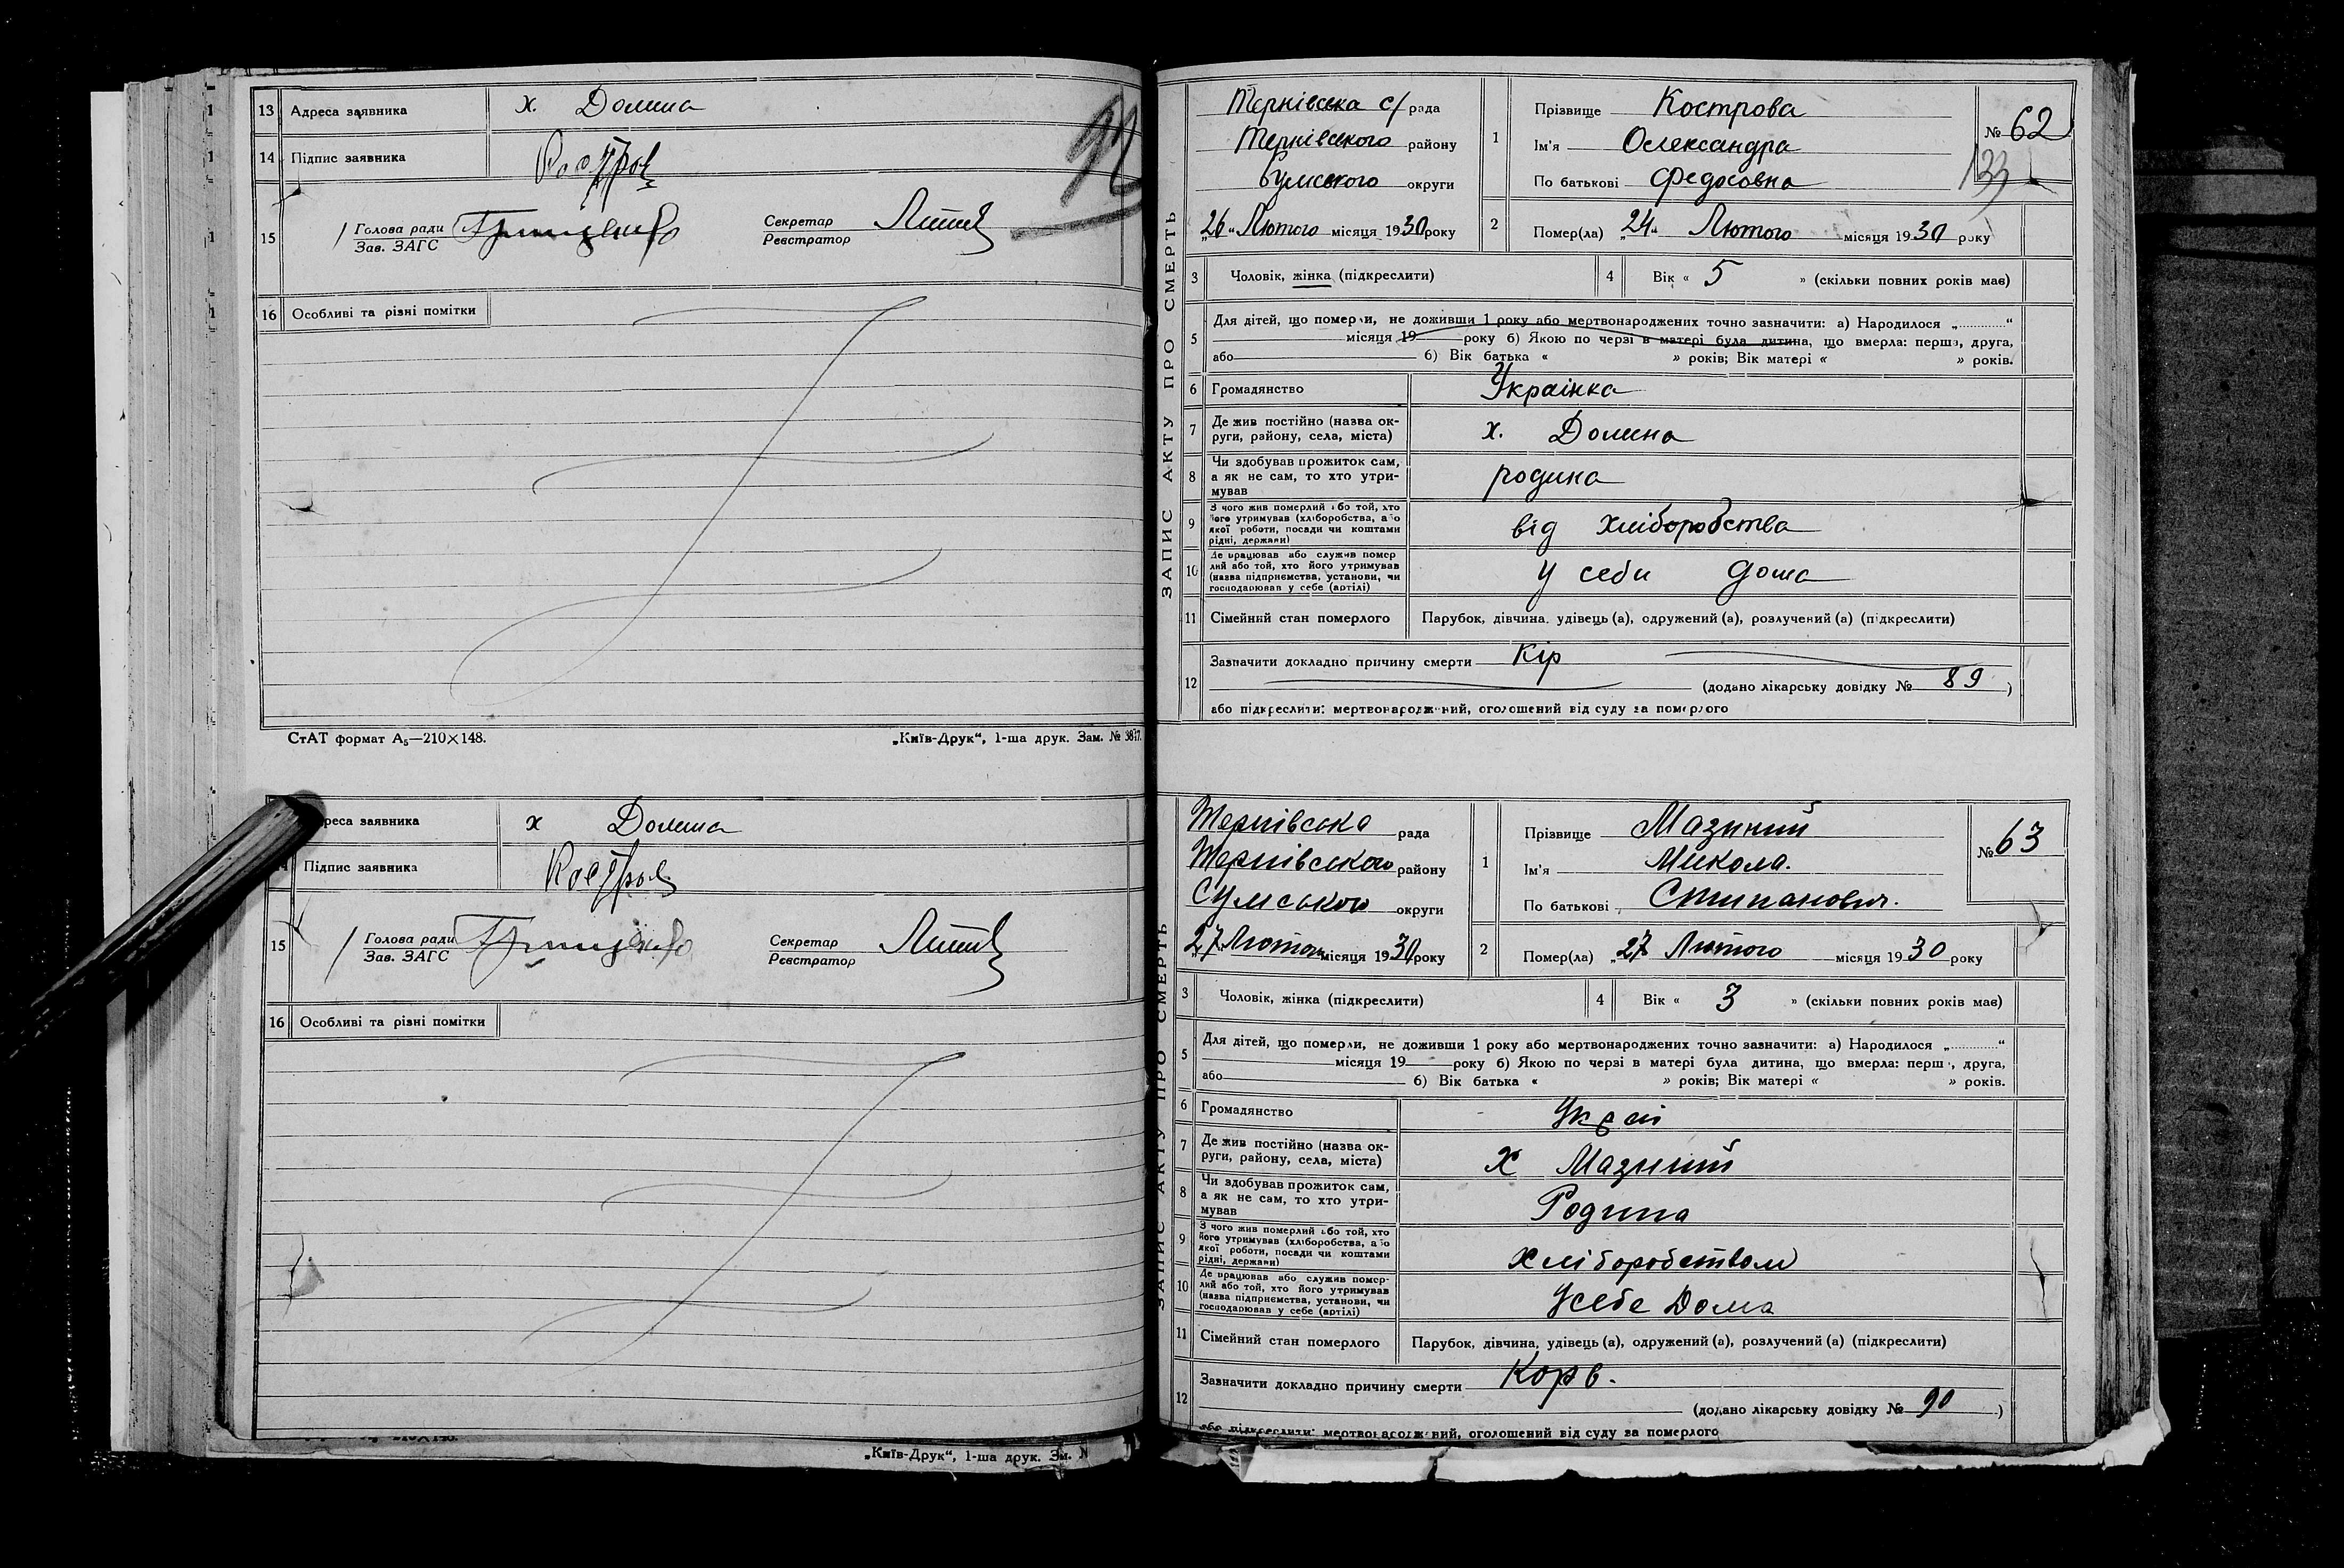 13 Адреса заявника х. Долина
14 Підпис заявника Костров
15 Голова ради
Зав. ЗАГС
Секретар
Реєстратор
16 Особливі та різні помітки
СтАТ формат А₅—210×148. „Київ-Друк“, 1-ша друк. Зам. № 3817.
реса заявника х Долина
Підпис заявника Костров
15 Голова ради
Зав. ЗАГС
Секретар
Реєстратор
16 Особливі та різні помітки
„Київ-Друк“, 1-ша друк. Зм. N
ЗАПИС АКТУ ПРО СМЕРТЬ
Тернівська с/рада
Тернівського району
Сумського округи
„26“ Лютого місяця 1930 року
1 Прізвище Кострова
Ім'я Олександра
По батькові Федосовна
№ 62
133
2 Помер(ла) „24“ Лютого місяця 1930 року
3 Чоловік, жінка (підкреслити) 4 Вік « 5 » (скільки повних років має)
5 Для дітей, що померли, не доживши 1 року або мертвонароджених точно зазначити: а) Народилося „............“
місяця 19 року б) Якою по черзі в матері була дитина, що вмерла: перша, друга,
або б) Вік батька « » років; Вік матері « » років.
6 Громадянство Українка
7 Де жив постійно (назва ок-
руги, району, села, міста) х. Долина
8 Чи здобував прожиток сам,
а як не сам, то хто утри-
мував родина
9 З чого жив померлий або той, хто
його утримував (хліборобства, або
якої роботи, посади чи коштами
рідні, держави) від хліборобства
10 Де працював або служив помер
лий або той, хто його утримував
(назва підприємства, установи, чи
господарював у себе (артілі) у себи дома
11 Сімейний стан померлого Парубок, дівчина, удівець (а), одружений (а), розлучений (а) (підкреслити)
12 Зазначити докладно причину смерти Кір
(додано лікарську довідку № 89)
або підкреслити: мертвонароджений, оголошений від суду за померлого
ЗАПИС АКТУ ПРО СМЕРТЬ
Тернівська рада
Тернівського району
Сумського округи
„27 Лютого місяця 1930 року
1 Прізвище Мазний
Ім'я Микола.
По батькові Стипанович.
№ 63
2 Помер(ла) „27 Лютого місяця 1930 року
3 Чоловік, жінка (підкреслити) 4 Вік « 3 » (скільки повних років має)
5 Для дітей, що померли, не доживши 1 року або мертвонароджених точно зазначити: а) Народилося „............“
місяця 19 року б) Якою по черзі в матері була дитина, що вмерла: перш , друга,
або б) Вік батька « » років; Вік матері « » років.
6 Громадянство
7 Де жив постійно (назва ок-
руги, району, села, міста) х Мазний
8 Чи здобував прожиток сам,
а як не сам, то хто утри-
мував Родина
9 З чого жив померлий або той, хто
його утримував (хліборобства, або
якої роботи, посади чи коштами
рідні, держави) хліборобством
10 Де працював або служив помер-
лий або той, хто його утримував
(назва підприємства, установи, чи
господарював у себе (артілі) Усебе Дома
11 Сімейний стан померлого Парубок, дівчина, удівець (а), одружений (а), розлучений (а) (підкреслити)
12 Зазначити докладно причину смерти Корь.
(додано лікарську довідку № 90)
або підкреслити: мертвонароджений, оголошений від суду за померлого